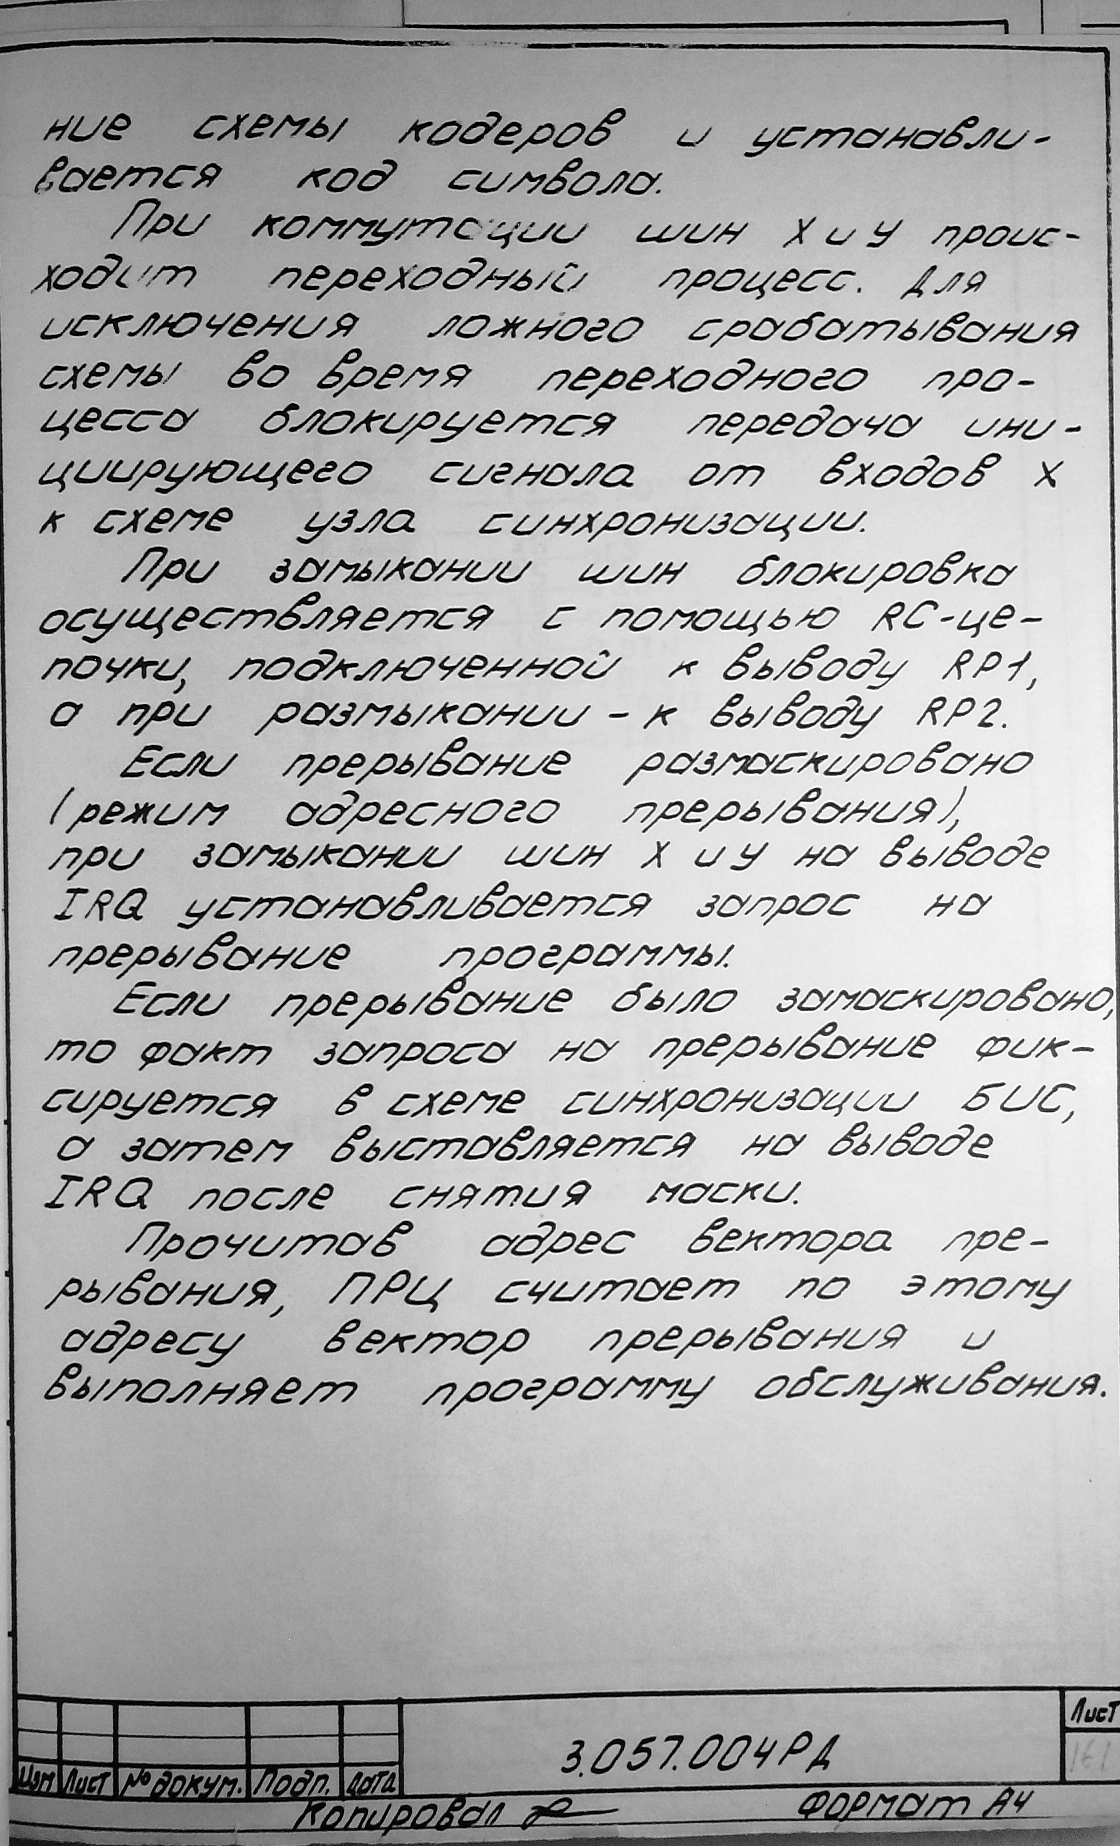 ние схемы кодеров и устанавли-
вается код символа.
При коммутации шин X и У проис-
ходит переходный процесс. Для
исключения ложного срабатывания
схемы во время переходного про-
цесса блокируется передача ини-
циирующего сигнала от входов X
к схеме узла синхронизации.
При замыкании шин блокировка
осуществляется с помощью RC-це-
почки, подключенной к выводу RP1,
а при размыкании - к выводу RP2.
Если прерывание размаскировано
(режим адресного прерывания),
при замыкании шин X и У на выводе
IRQ устанавливается запрос на
прерывание программы.
Если прерывание было замаскировано,
то факт запроса на прерывание фик-
сируется в схеме синхронизации БИС,
а затем выставляется на выводе
IRQ после снятия маски.
Прочитав адрес вектора пре-
рывания, ПРЦ считает по этому
адресу вектор прерывания и
выполняет программу обслуживания.
Лист
3.057.004РД
161
Изм Лист № докум. Подп. Дата
Копировал Формат А4